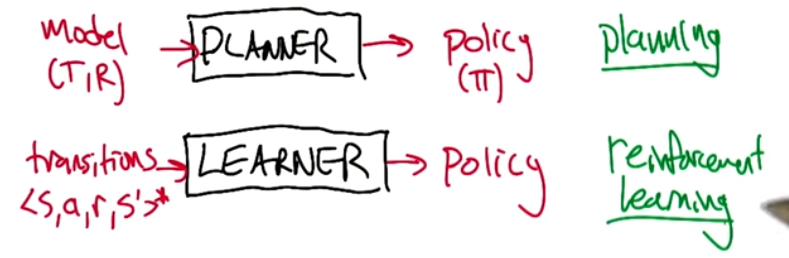 model → PLANNER → policy planning
(T,R) (π)
transitions → LEARNER → policy reinforcement
<s,a,r,s'>* learning